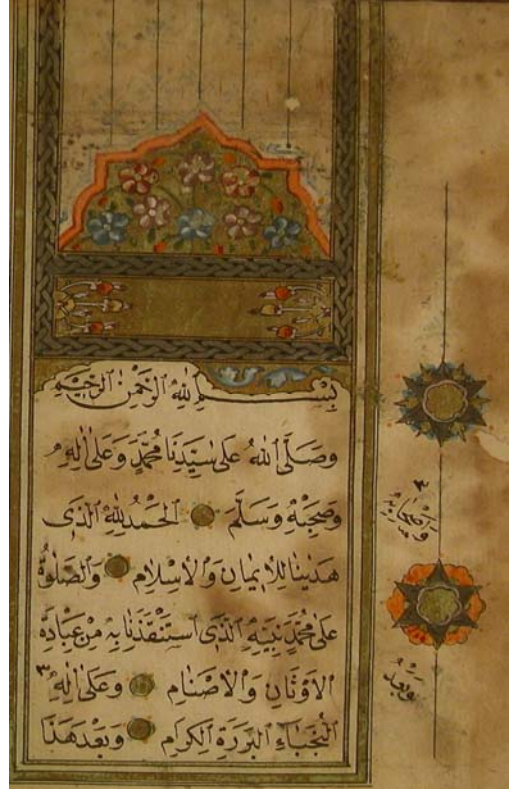 بِسْمِ ٱللّٰهِ ٱلرَّحْمٰنِ ٱلرَّحِيْمِ
وَصَلَّى ٱللّٰهُ عَلٰى سَيِّدِنَا مُحَمَّدٍ وَعَلٰى اٰلِهِ
وَصَحْبِهِ وَسَلَّمَ ٱلْحَمْدُ لِلّٰهِ ٱلَّذِى
هَدٰينَا لِلْاِيمَانِ وَٱلْاِسْلَامِ وَٱلصَّلٰوةُ
عَلٰى مُحَمَّدٍ نَبِيِّهِ ٱلَّذِى ٱسْتَنْقَذَنَا بِهِ مِنْ عِبَادَةِ
ٱلْاَوْثَانِ وَٱلْاَصْنَامِ وَعَلٰى اٰلِهِ ٣
ٱلنُّجَبَاءِ ٱلْبَرَرَةِ ٱلْكِرَامِ وَبَعْدَ هٰذَا
وَاَصْحَابِهِ
وَبَعْدُ